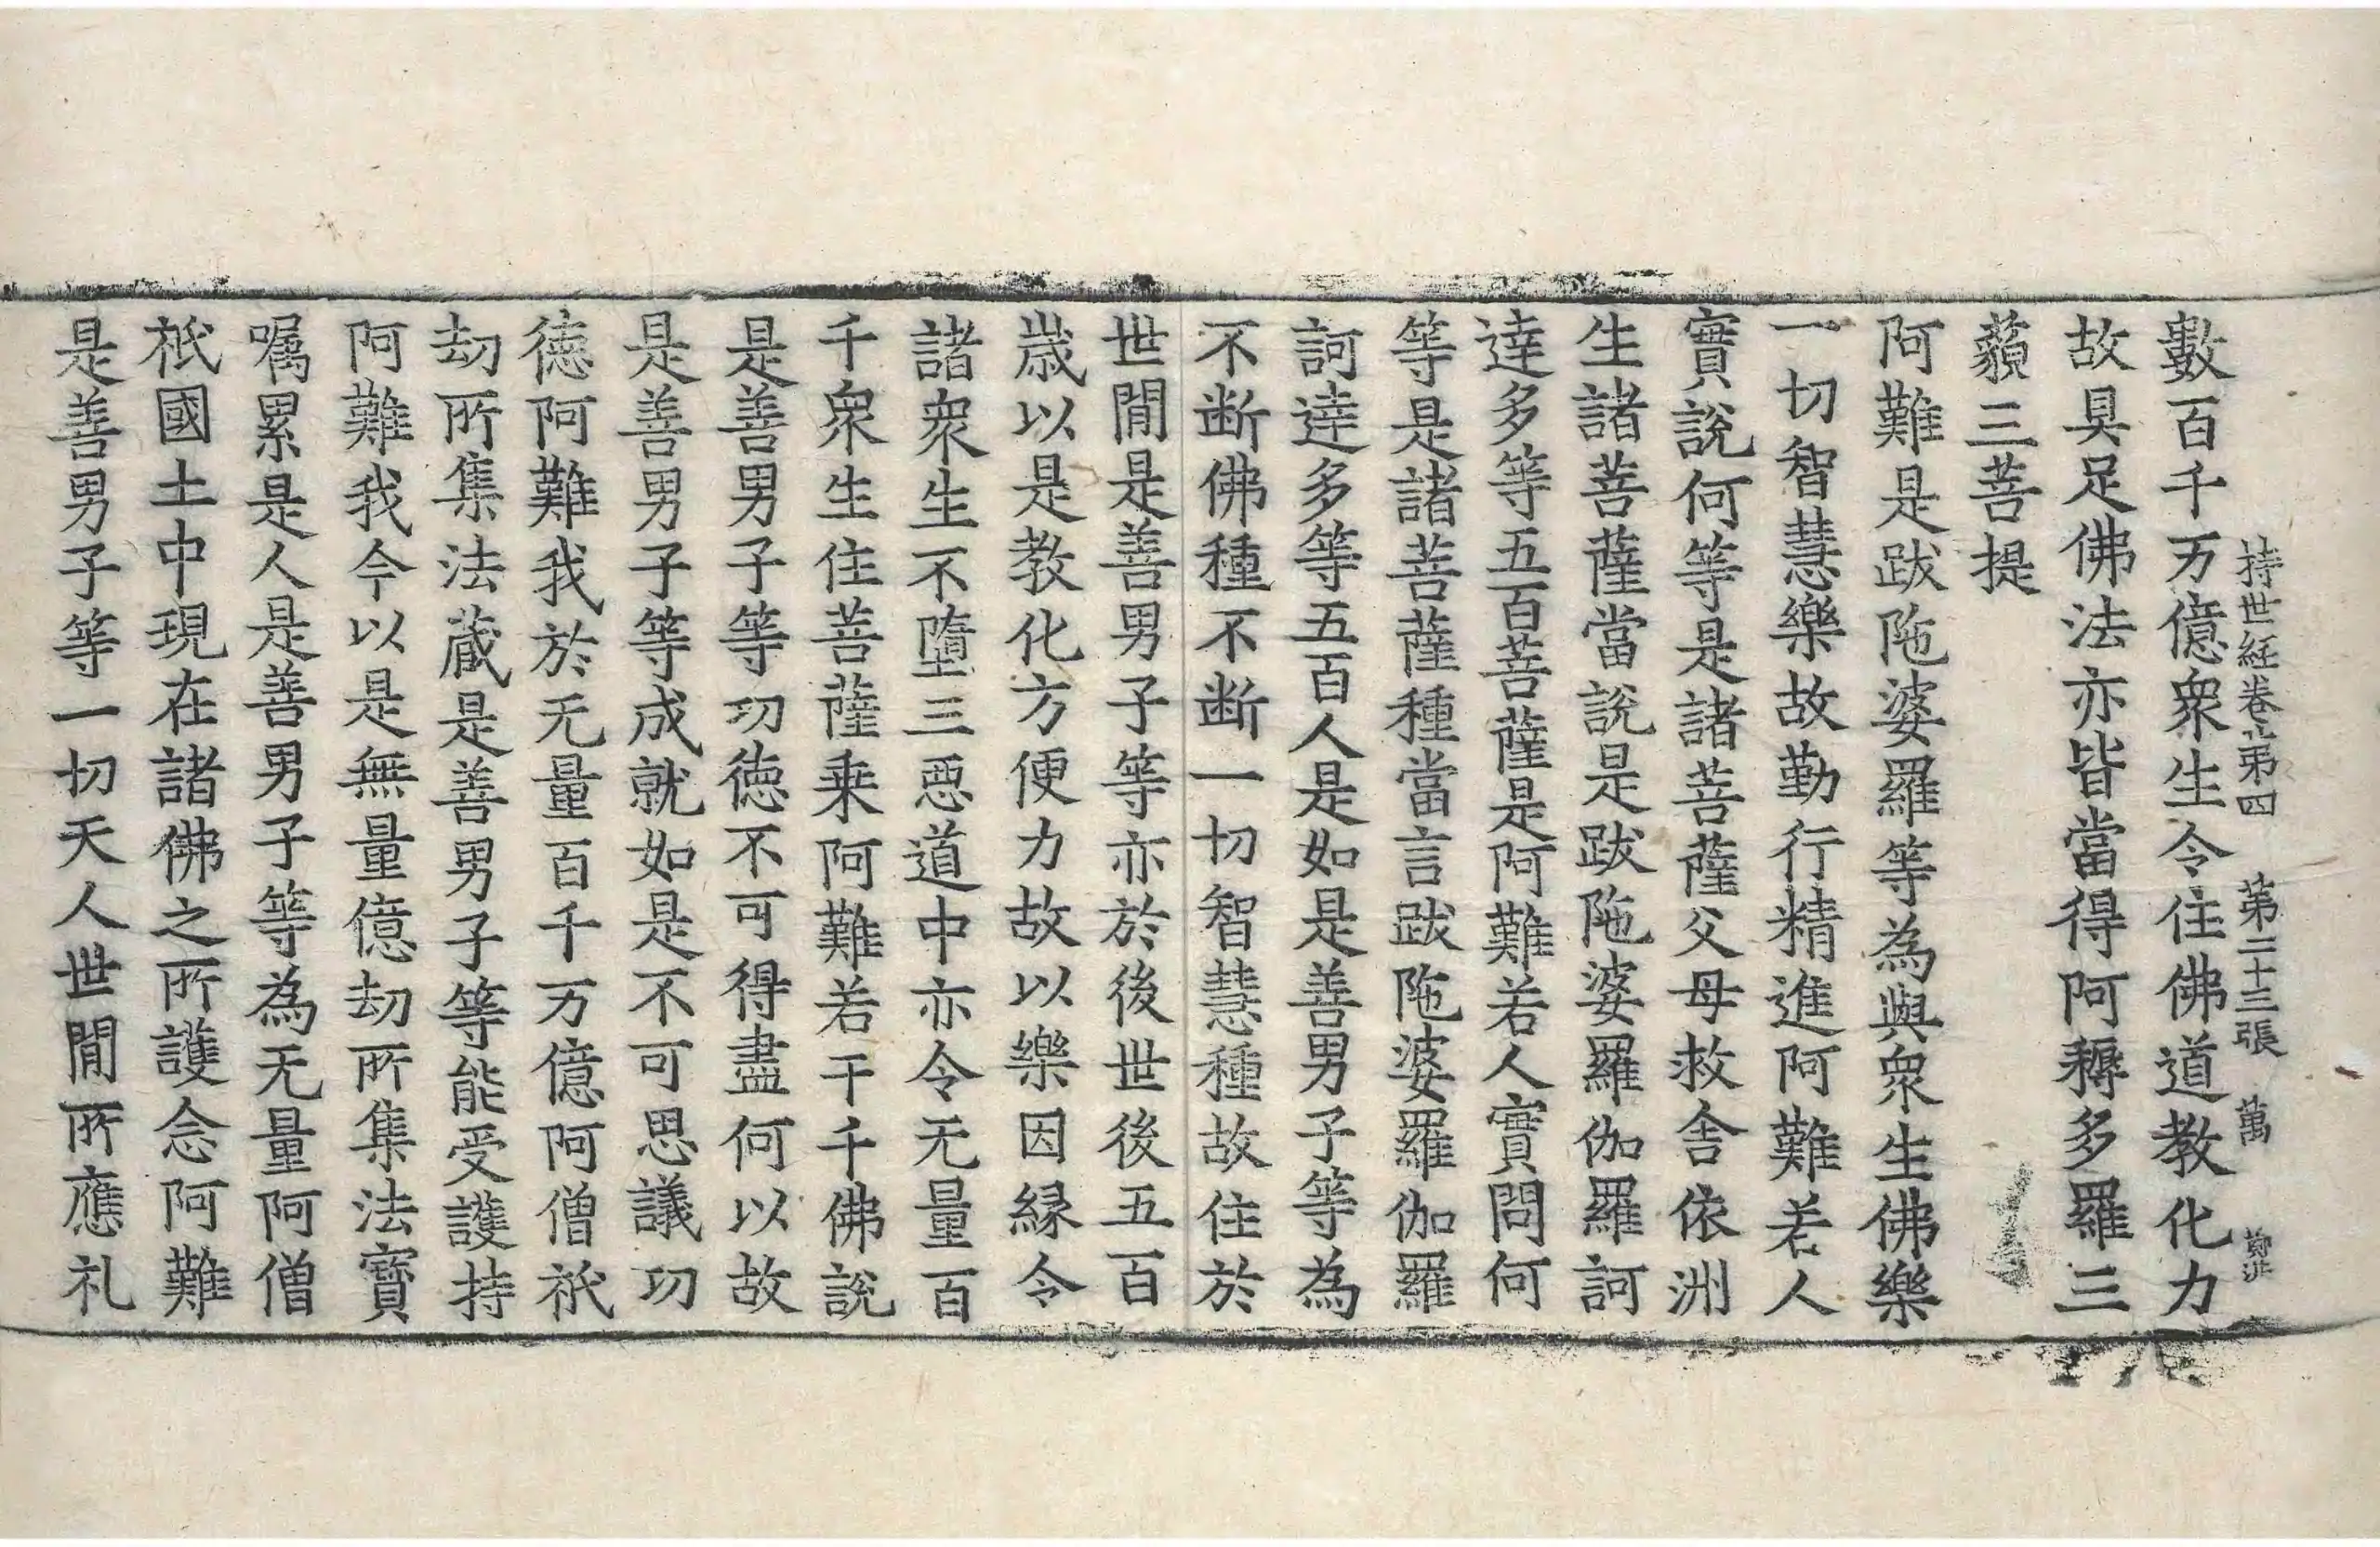 持世経卷第四 第二十三張 萬
數百千万億衆生令住佛道教化力
故具足佛法亦皆當得阿耨多羅三
藐三菩提
阿難是跋陁婆羅等為與衆生佛樂
一切智慧樂故勤行精進阿難若人
實說何等是諸菩薩父母救舍依洲
生諸菩薩當說是跋陁婆羅伽羅訶
達多等五百菩薩是阿難若人實問何
等是諸菩薩種當言跋陁婆羅伽羅
訶達多等五百人是如是善男子等為
不断佛種不断一切智慧種故住於
世閒是善男子等亦於後世後五百
歲以是教化方便力故以樂因縁令
諸衆生不墮三惡道中亦令无量百
千衆生住菩薩乗阿難若干千佛說
是善男子等功徳不可得盡何以故
是善男子等成就如是不可思議功
徳阿難我於无量百千万億阿僧祇
劫所集法蔵是善男子等能受護持
阿難我今以是無量億劫所集法寶
嘱累是人是善男子等為无量阿僧
祇國土中現在諸佛之所護念阿難
是善男子等一切天人世閒所應礼